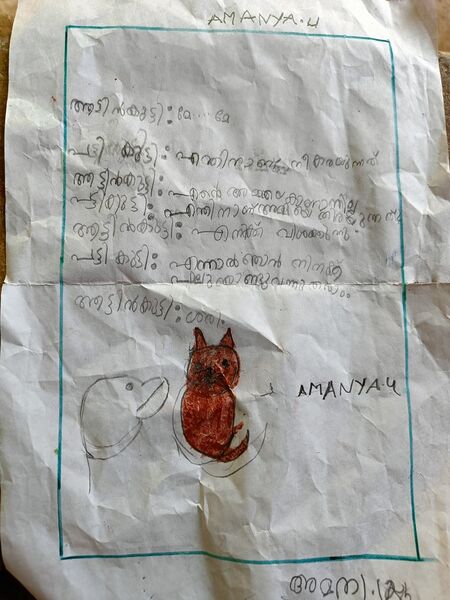 AMANYA.U
ആട്ടിൻകുട്ടി: മേ.... മേ
പട്ടിക്കുട്ടി: എന്തിനാണ് നീ കരയുന്നത്
ആട്ടിൻകുട്ടി: എന്റെ അമ്മയെ കാണാനില്ല
പട്ടികുട്ടി: എന്തിനാണ് അമ്മയെ തിരയുന്നത്
ആട്ടിൻകുട്ടി: എനിക്ക് വിശക്കുന്നു
പട്ടികുട്ടി: എന്നാൽ ഞാൻ നിനക്ക്
കൊണ്ടുവന്നു തരാം.
ആട്ടിൻകുട്ടി: ശരി.
AMANYA.U